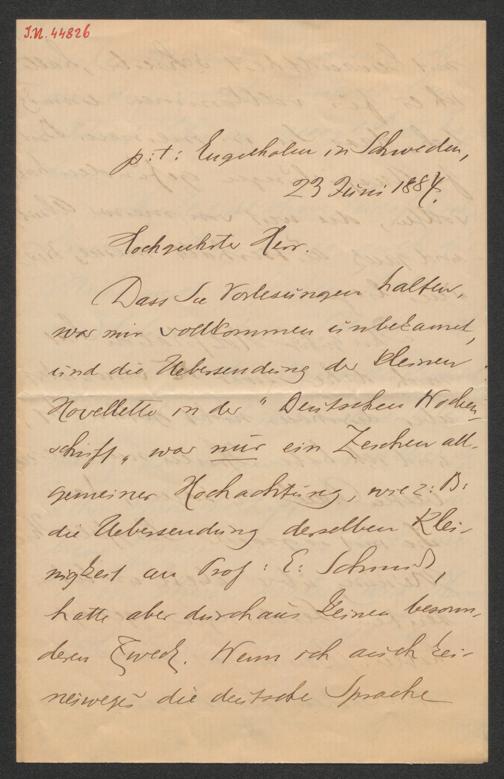 J.N. 44826
p: t: Engelholm in Schweden,
23 Juni 1884.
Hochgeehrter Herr.
Dass Sie Vorlesungen halten,
war mir vollkommen unbekannt,
und die Uebersendung der kleinen
Novellette in der "Deutschen Wochen-
schrift" war nur ein Zeichen all-
gemeiner Hochachtung, wie z: B:
die Uebersendung derselben Klei-
nigkeit an Prof: E: Schmidt,
hatte aber durchaus keinen beson-
deren Zweck. Wenn ich auch kei-
neswegs die deutsche Sprache